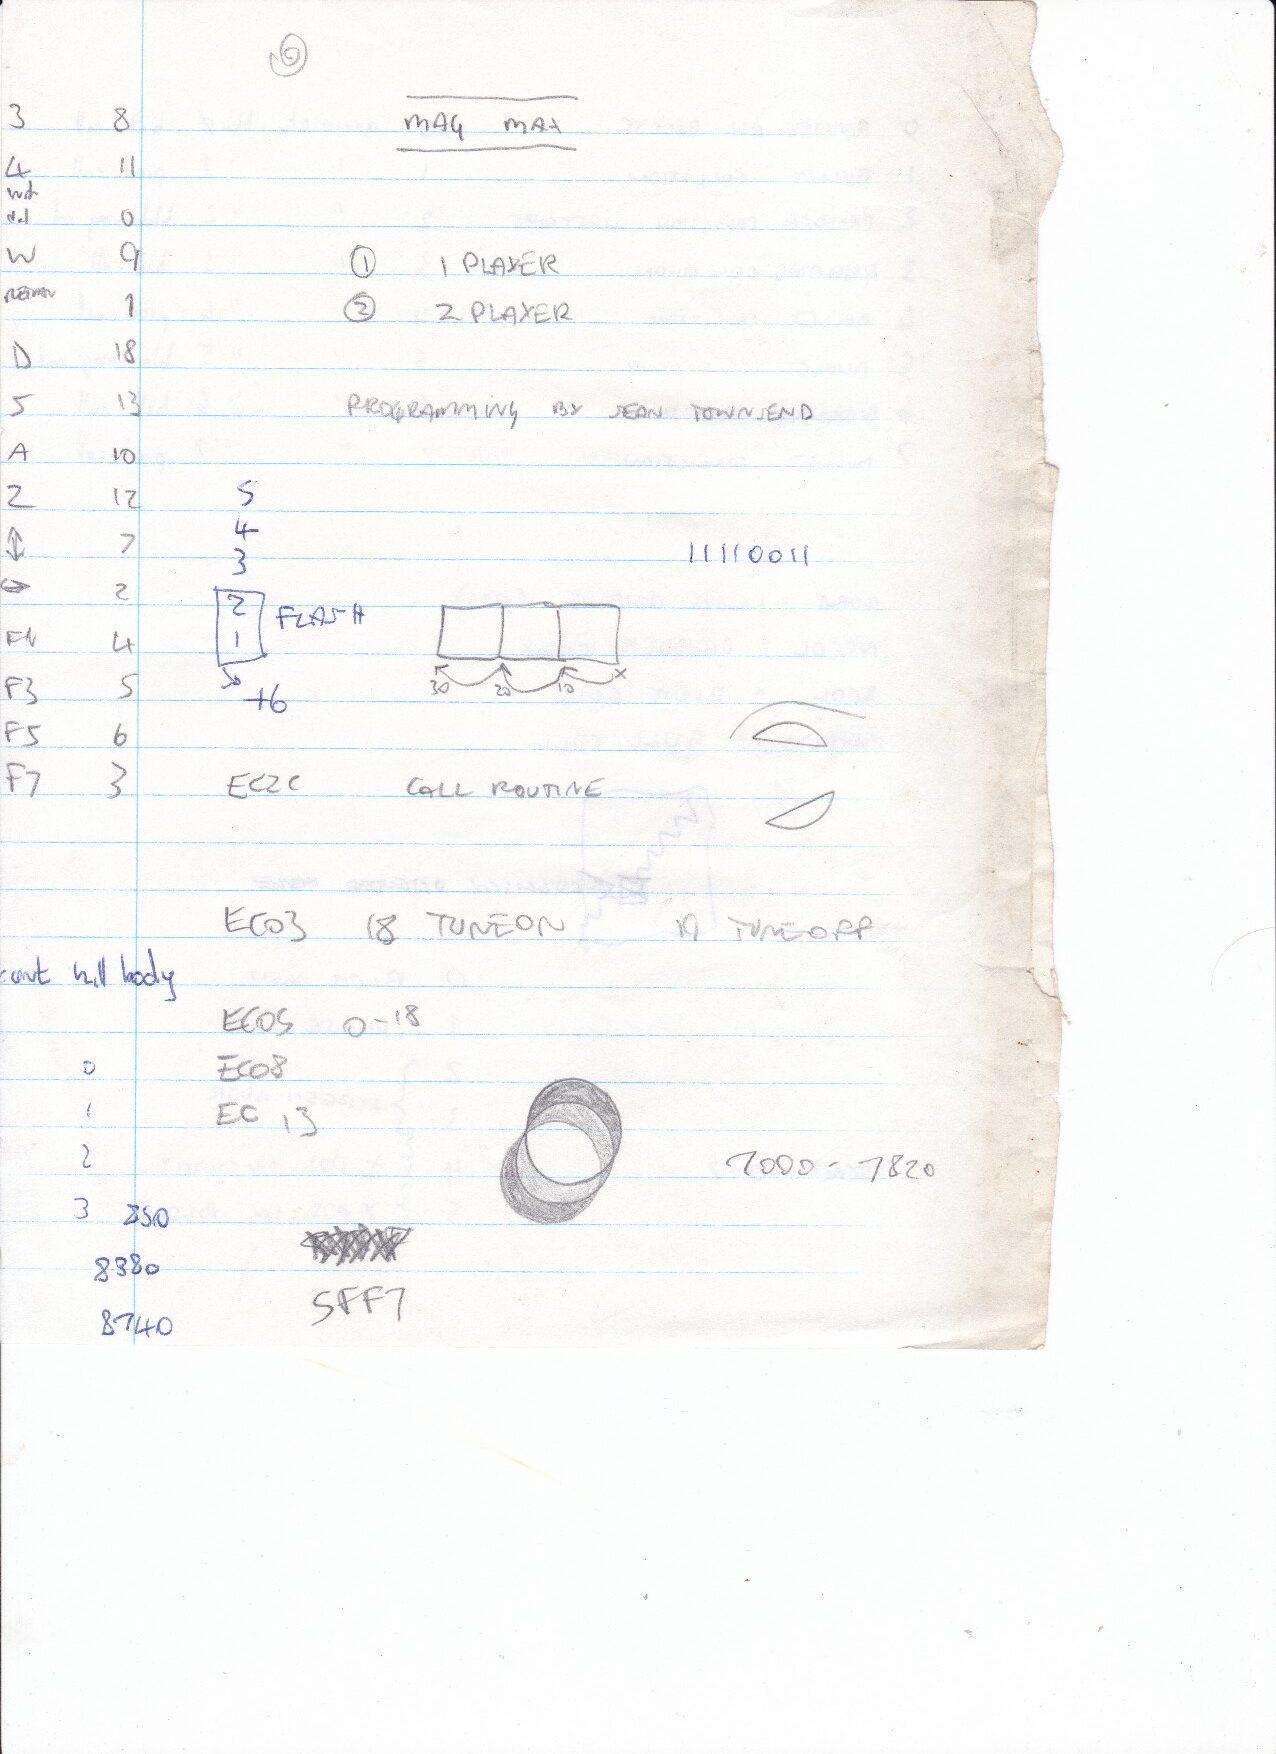 3 8 MAG MAX
4 11
0
W 9 ① 1 PLAYER
RETURN 1 ② 2 PLAYER
D 18
5 13 PROGRAMMING BY JEAN TOWNSEND
A 10
Z 12 5
↕ 7 4
3 11110011
↔ 2 2 FLASH
F1 4 1
F3 5 30 20 10 X
+6
F5 6
F7 3 EC2C CALL ROUTINE
EC03 18 TUNEON 19 TUNEOFF
body
EC05 0-18
0 EC08
1 EC 13
2 7000 - 7820
3 850
8380
8740 5FF7